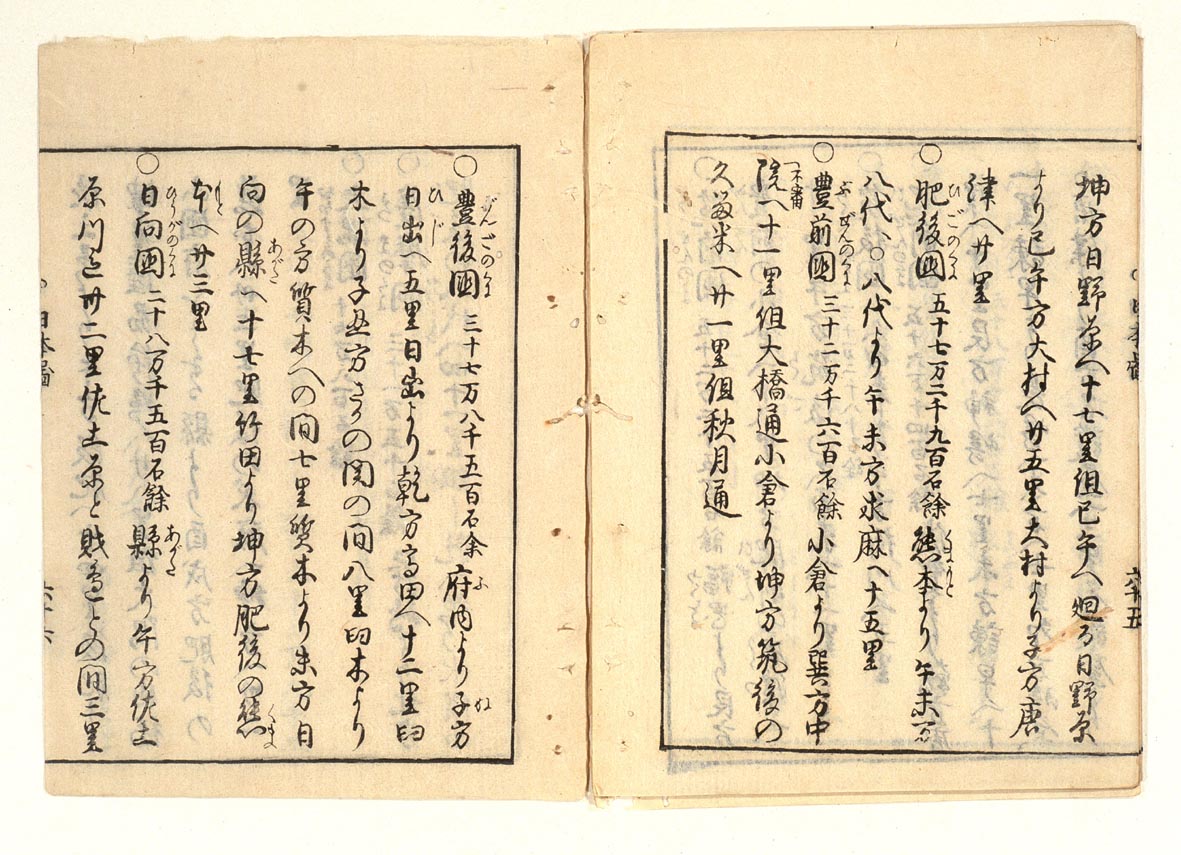 坤方日野原へ十七里但巳午へ廻ル日野原
より巳午方大村へ廿五里大村より子方唐
津へ廿里
○肥後國 五十七万二千九百石餘 熊本より午未方
八代、○八代より午未方求麻へ十五里
○豊前國 三十二万千六百石餘 小倉より巽方中
院へ十一里但大橋通小倉より坤方筑後の
久留米へ廿一里但秋月通
六十五
○豊後國 三十七万八千五百石余 府内より子方
日出へ五里日出より乾方高田へ十二里臼
木より子丑方さかの関の間八里臼木より
午の方質木への間七里質木より未方日
向の縣へ十七里竹田より坤方肥後の熊
本へ廿三里
○日向國 二十八万千五百石餘 縣より午方佐土
原川迄廿二里佐土原と財邉との間三里
日本圖
六十六